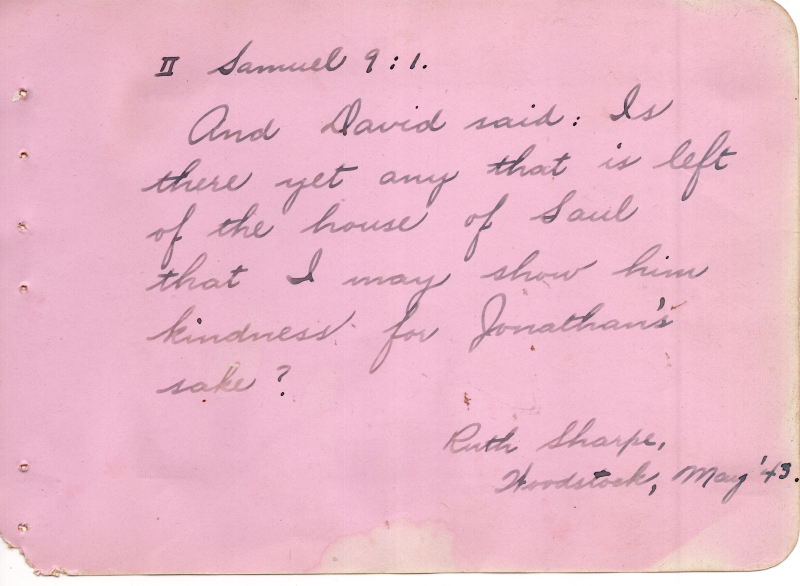 II Samuel 9:1.
And David said: Is
there yet any that is left
of the house of Saul
that I may show him
kindness for Jonathan's
sake?
Ruth Sharpe,
Woodstock, May '43.